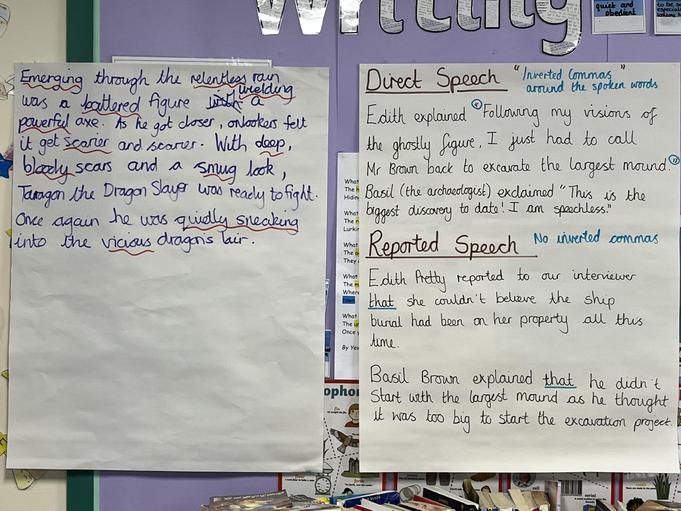 Writing
quiet and
obedient
Emerging through the relentless rain
wielding
was a battered figure with a
powerful axe. As he got closer, onlookers felt
it get scarier and scarier. With deep,
bloody scars and a smug look,
Taragon the Dragon Slayer was ready to fight.
Once again he was quietly sneaking
into the vicious dragons lair.
Direct Speech "Inverted Commas"
around the spoken words
Edith explained "Following my visions of
the ghostly figure, I just had to call
Mr Brown back to excavate the largest mound."
Basil (the archaeologist) exclaimed "This is the
biggest discovery to date! I am speechless."
Reported Speech No inverted commas
Edith Pretty reported to our interviewer
that she couldn't believe the ship
burial had been on her property all this
time.
Basil Brown explained that he didn't
start with the largest mound as he thought
it was too big to start the excavation project.
What
The
Hidin
What
The
Lurki
What
The
They
What
The
Where
What
The
Once
By Yew